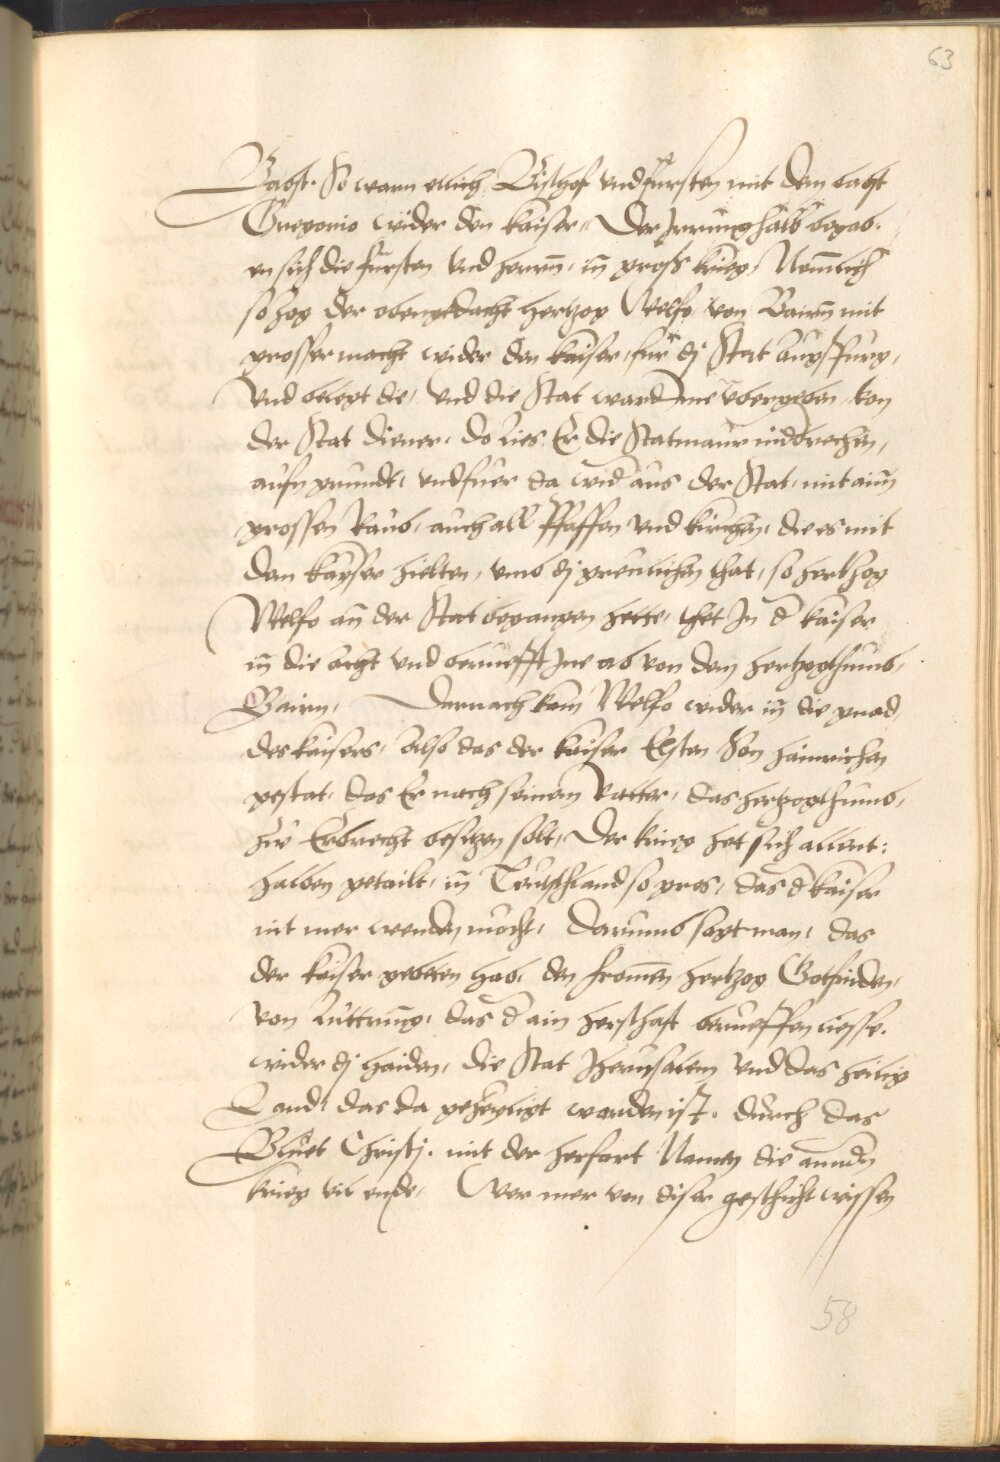 63
Babst. So warn etlich Bischof vnd fürsten mit dem babst
Gregorio wider den kaiser, Der Irrung halb begab,
en sich die fürsten vnd herrn, in gross krieg, Nemlich
so zog der obengedacht hertzog Welfo von Bairn mit
grosser macht wider den kaiser, für dj Stat augspurg,
vnd belegt die, vnd die Stat ward Ime vbergeben, von
der Stat diener, do lies Er die Statmaur nidbrechen,
aufn grundt, vnd fuer da wid aus der Stat, mit aim
grossen Raub, auch all Pfaffen vnd kirchen, die es mit
dem kayser hielten, vmb dj greulichen that, so hertzog
Welfo an der Stat begangen hette, thet In d kaiser
in die acht vnd berueft Ine ab von dem hertzogthumb,
Bairn, Darnach kam Welfo wider in die gnad,
des kaisers, Also das der kaiser Elsten Son hainrichen
gestat, das Er nach seinem vatter, das hertzogthumb,
zu Erbrecht besitzen solt, Der krieg het sich allent:
halben getailt, in Teutschland so gros, das d kaiser
nit mer wenden mocht, Darumb sagt man, das
der kaiser gebeten hab, den fromen hertzog Gotfriden,
von Luttring, das d ain herschaft berueffen liesse,
wider dj haiden, die Stat Jherusalem vnd das heilig
Land, das da geheyligt worden ist, durch das
Bluet Christj, mit der herfart Namen die andn
krieg vil ende, Wer mer von diser geschicht wissen
58